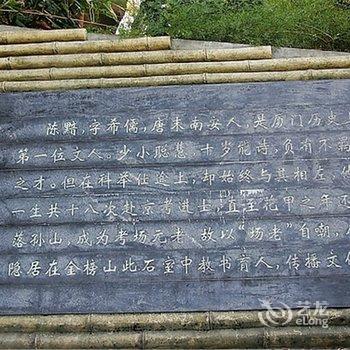 陈黯,字希儒,唐末南安人,是厦门历史
第一位文人。少小聪慧,十岁能诗,负有不羁
之才。但在科举仕途上,却始终与其相左,他
一生共十八次赴京考进士,直至花甲之年还
落孙山,成为考场元老,故以“场老”自嘲,
隐居在金榜山此石室中教书育人,传播文
艺龙
eLong.